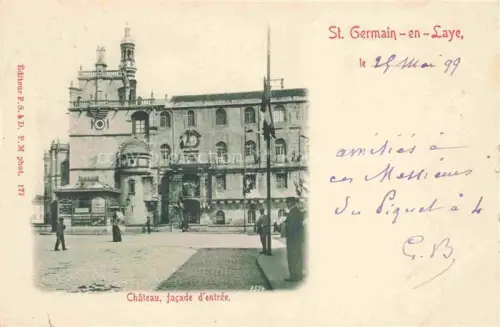 St. Germain-en-Laye,
le 25 Mai 99
amitiés à
ces Messieurs
du Piquet à 4
G. B.
Château, façade d'entrée.
Editeur P. S. à D. P. M phot. 177